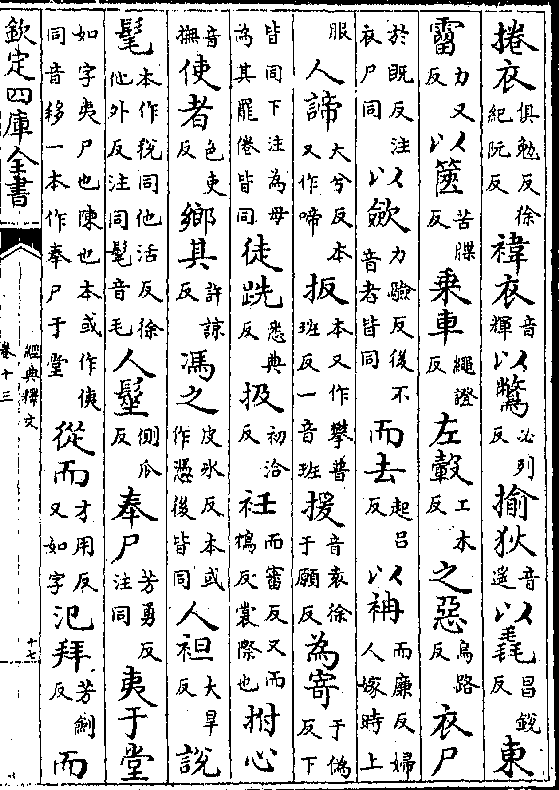 捲衣俱勉反徐紀阮反褘衣音輝以鷩必列反揄狄音遥以毳昌銳反東
霤力又反以篋苦牒反乗車繩證反左轂工木反之惡烏路反衣尸
於既反注衣尸同以歛力驗反後不音者皆同而去起吕反以袡而廉反婦人嫁時上
服人諦大兮反本又作啼扳本又作攀普班反一音班援音袁徐于願反為寄于偽反下
皆同下注為母為其罷倦皆同徒跣悉典反扱初洽反衽而審反又而鴆反裳際也拊心
音撫使者色吏反鄉其許諒反馮之皮冰反本或作憑後皆同人袒大旱反說
髦本作稅同他活反徐他外反注同髦音毛人髽側瓜反奉尸芳勇反注同夷于堂
如字夷尸也陳也本或作侇同音移一本作奉尸于堂從而才用反又如字氾拜芳劎反而
欽定四庫全書
經典釋文
卷十三
十七